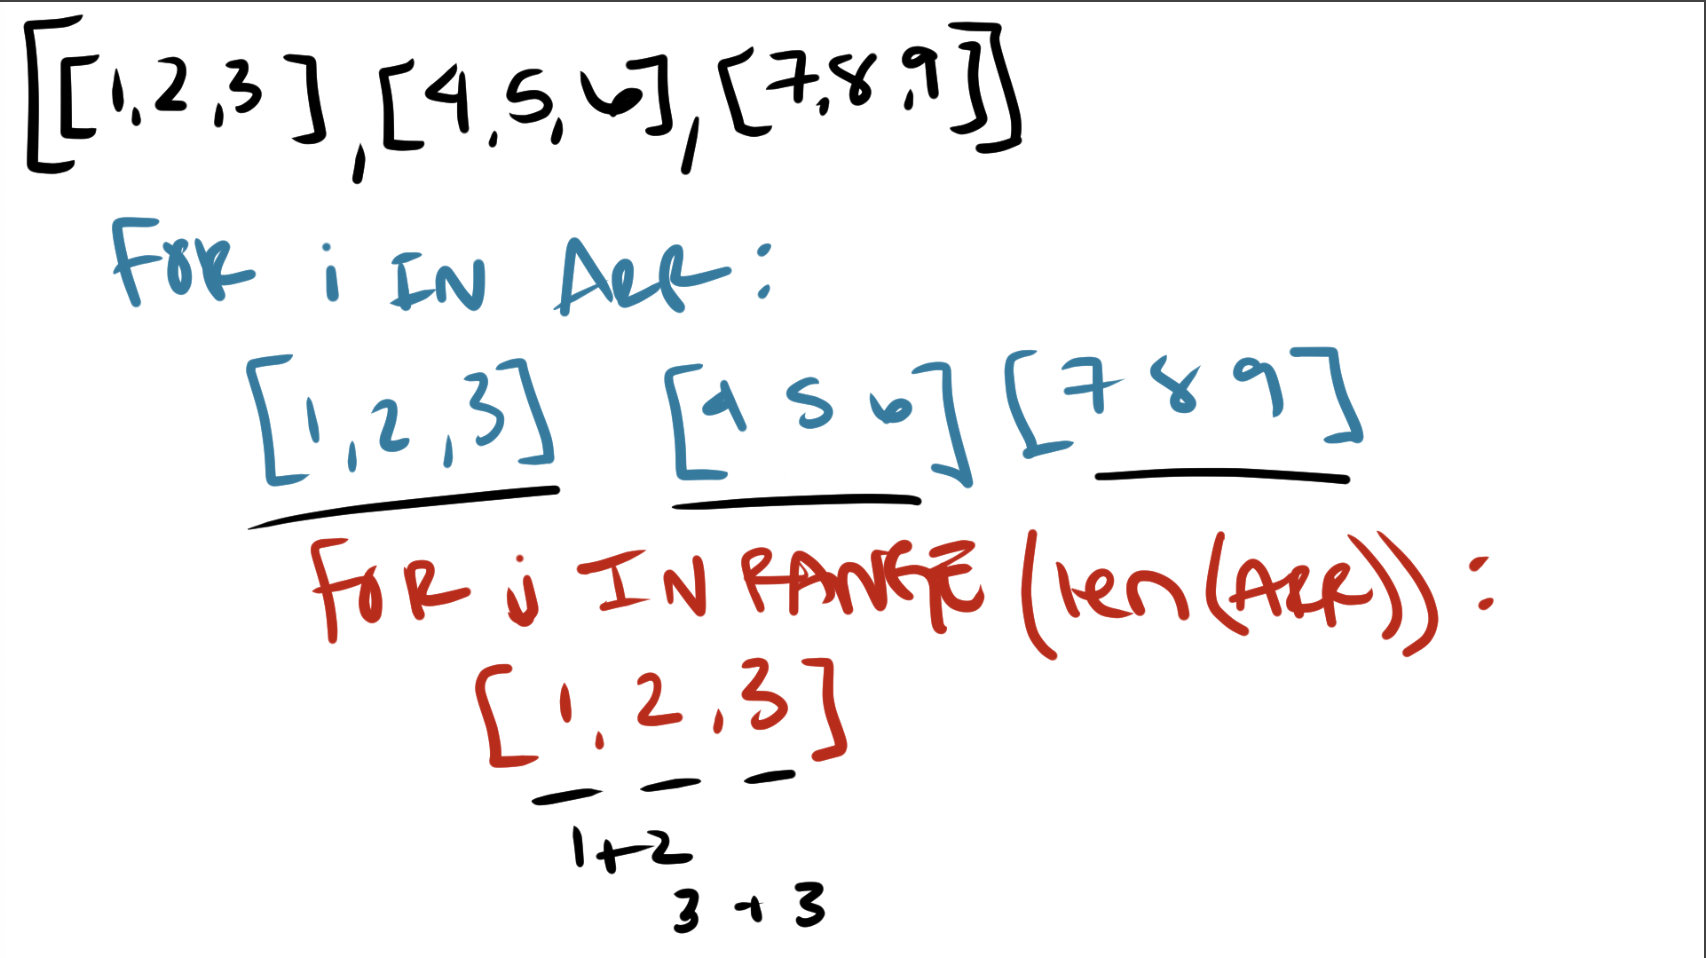 [[1,2,3],[4,5,6],[7,8,9]]
FOR i IN ARR:
[1,2,3] [4 5 6] [7 8 9]
FOR j IN RANGE (len(ARR)):
[1,2,3]
1+2
3+3